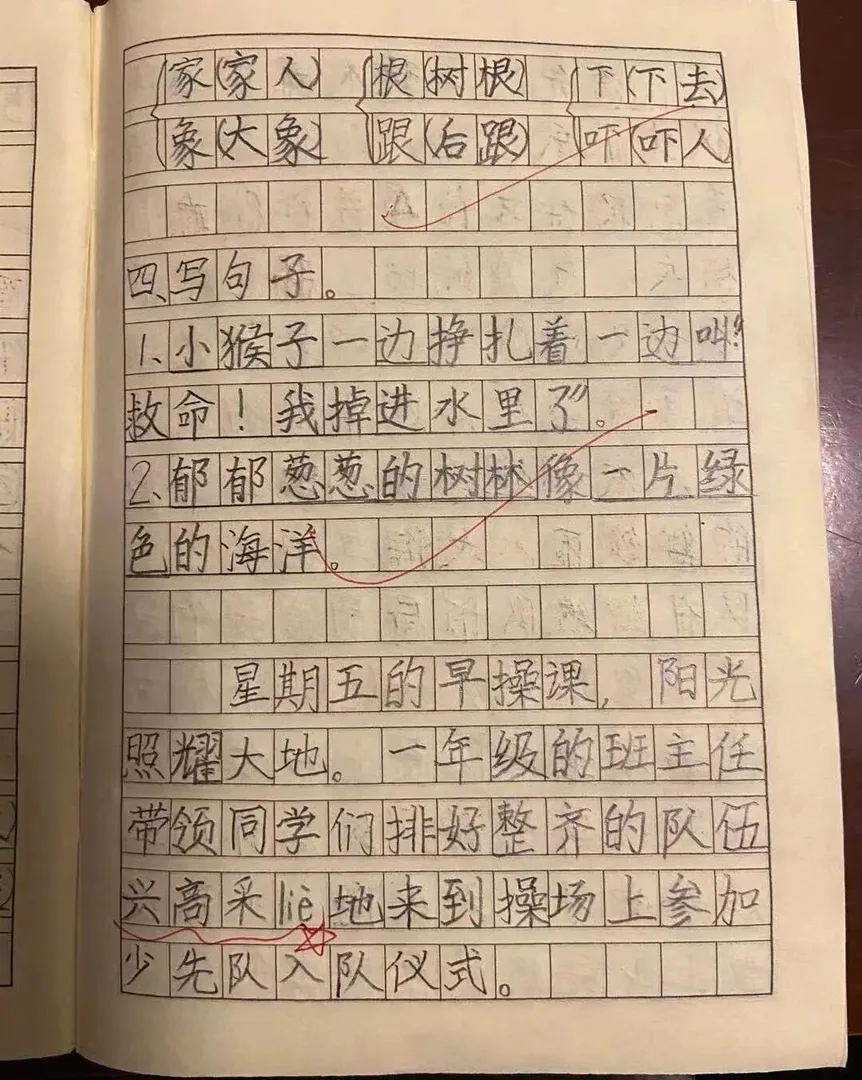 家(家人) 根(树根) 下(下去)
象(大象) 跟(后跟) 吓(吓人)
四、写句子。
1、小猴子一边挣扎着一边叫“
救命！我掉进水里了”。
2、郁郁葱葱的树林像一片绿
色的海洋。
星期五的早操课，阳光
照耀大地。一年级的班主任
带领同学们排好整齐的队伍
兴高采liè地来到操场上参加
少先队入队仪式。